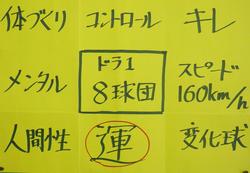 体づくり
コントロール
キレ
メンタル
ドラ1
8球団
スピード
160km/h
人間性
運
変化球